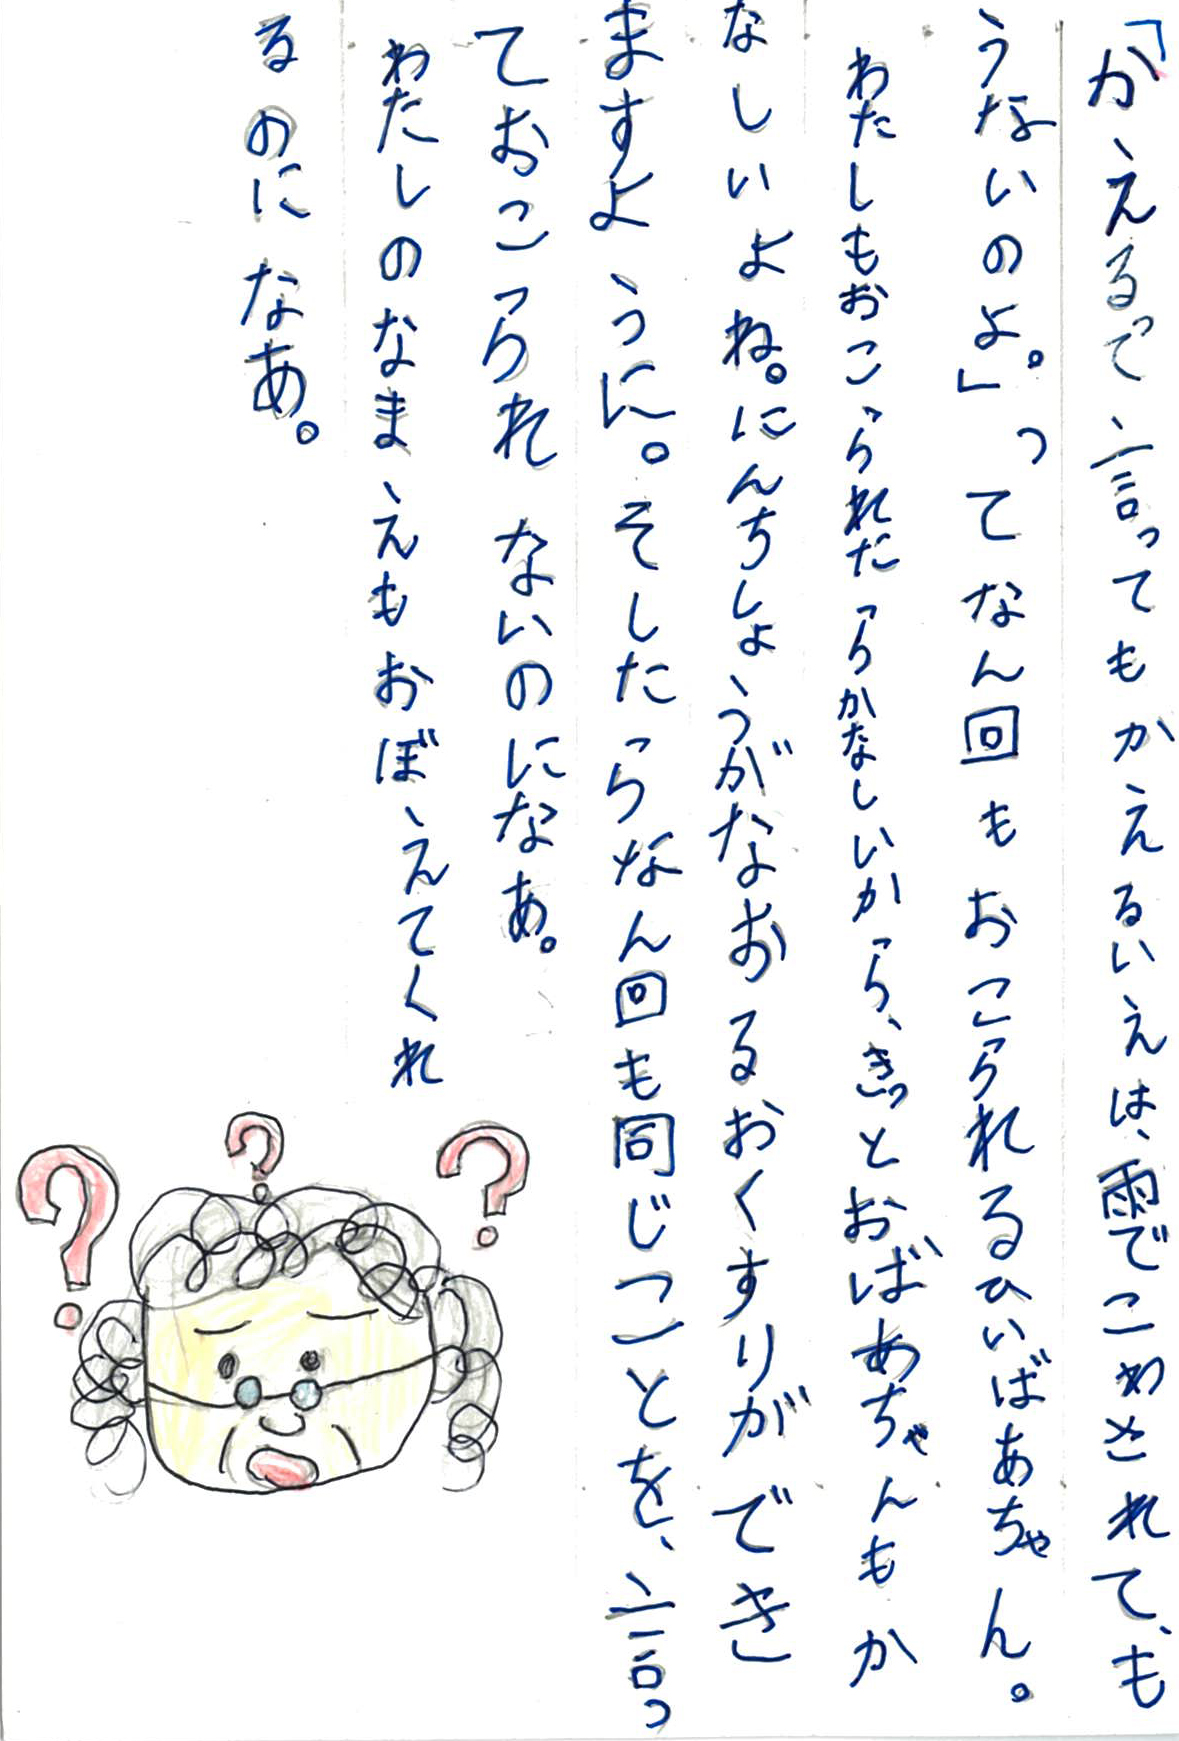 「かえるって言ってもかえるいえは、雨でこわされて、も
うないのよ。」ってなん回もおこられるひいばあちゃん。
わたしもおこられたらかなしいから、きっとおばあちゃんもか
なしいよね。にんちしょうがなおるおくすりができ
ますように。そしたらなん回も同じことを、言っ
ておこられないのになあ。
わたしのなまえもおぼえてくれ
るのになあ。
? ? ?